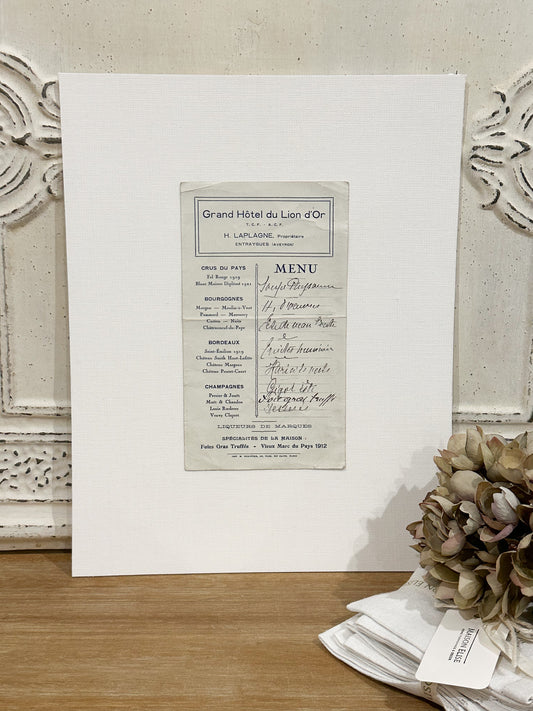 Grand Hôtel du Lion d'Or
T.C.F. - A.C.F.
H. LAPLAGNE, Propriétaire
ENTRAYGUES (AVEYRON)
CRUS DU PAYS
Fel Rouge 1919
Blanc Maison Diplômé 1921
BOURGOGNES
Morgon — Moulin-à-Vent
Pommard — Mercurey
Corton — Nuits
Châteauneuf-du-Pape
BORDEAUX
Saint-Émilion 1919
Château Smith Haut-Lafitte
Château Margaux
Château Pontet-Canet
CHAMPAGNES
Perrier & Jouët
Moët & Chandon
Louis Rœderer
Veuve Clicquot
MENU
Hors d'œuvres
Haricots verts
Gigot rôti
Foie gras truffé
Desserts
LIQUEURS DE MARQUES
SPÉCIALITÉS DE LA MAISON :
Foies Gras Truffés. - Vieux Marc du Pays 1912
MAISON ELISE